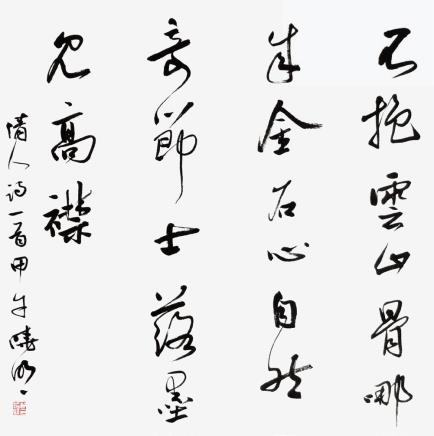 不抱雲山骨哪
成金石心自然
奇節士落墨
見高襟
清人詩一首甲午曉明